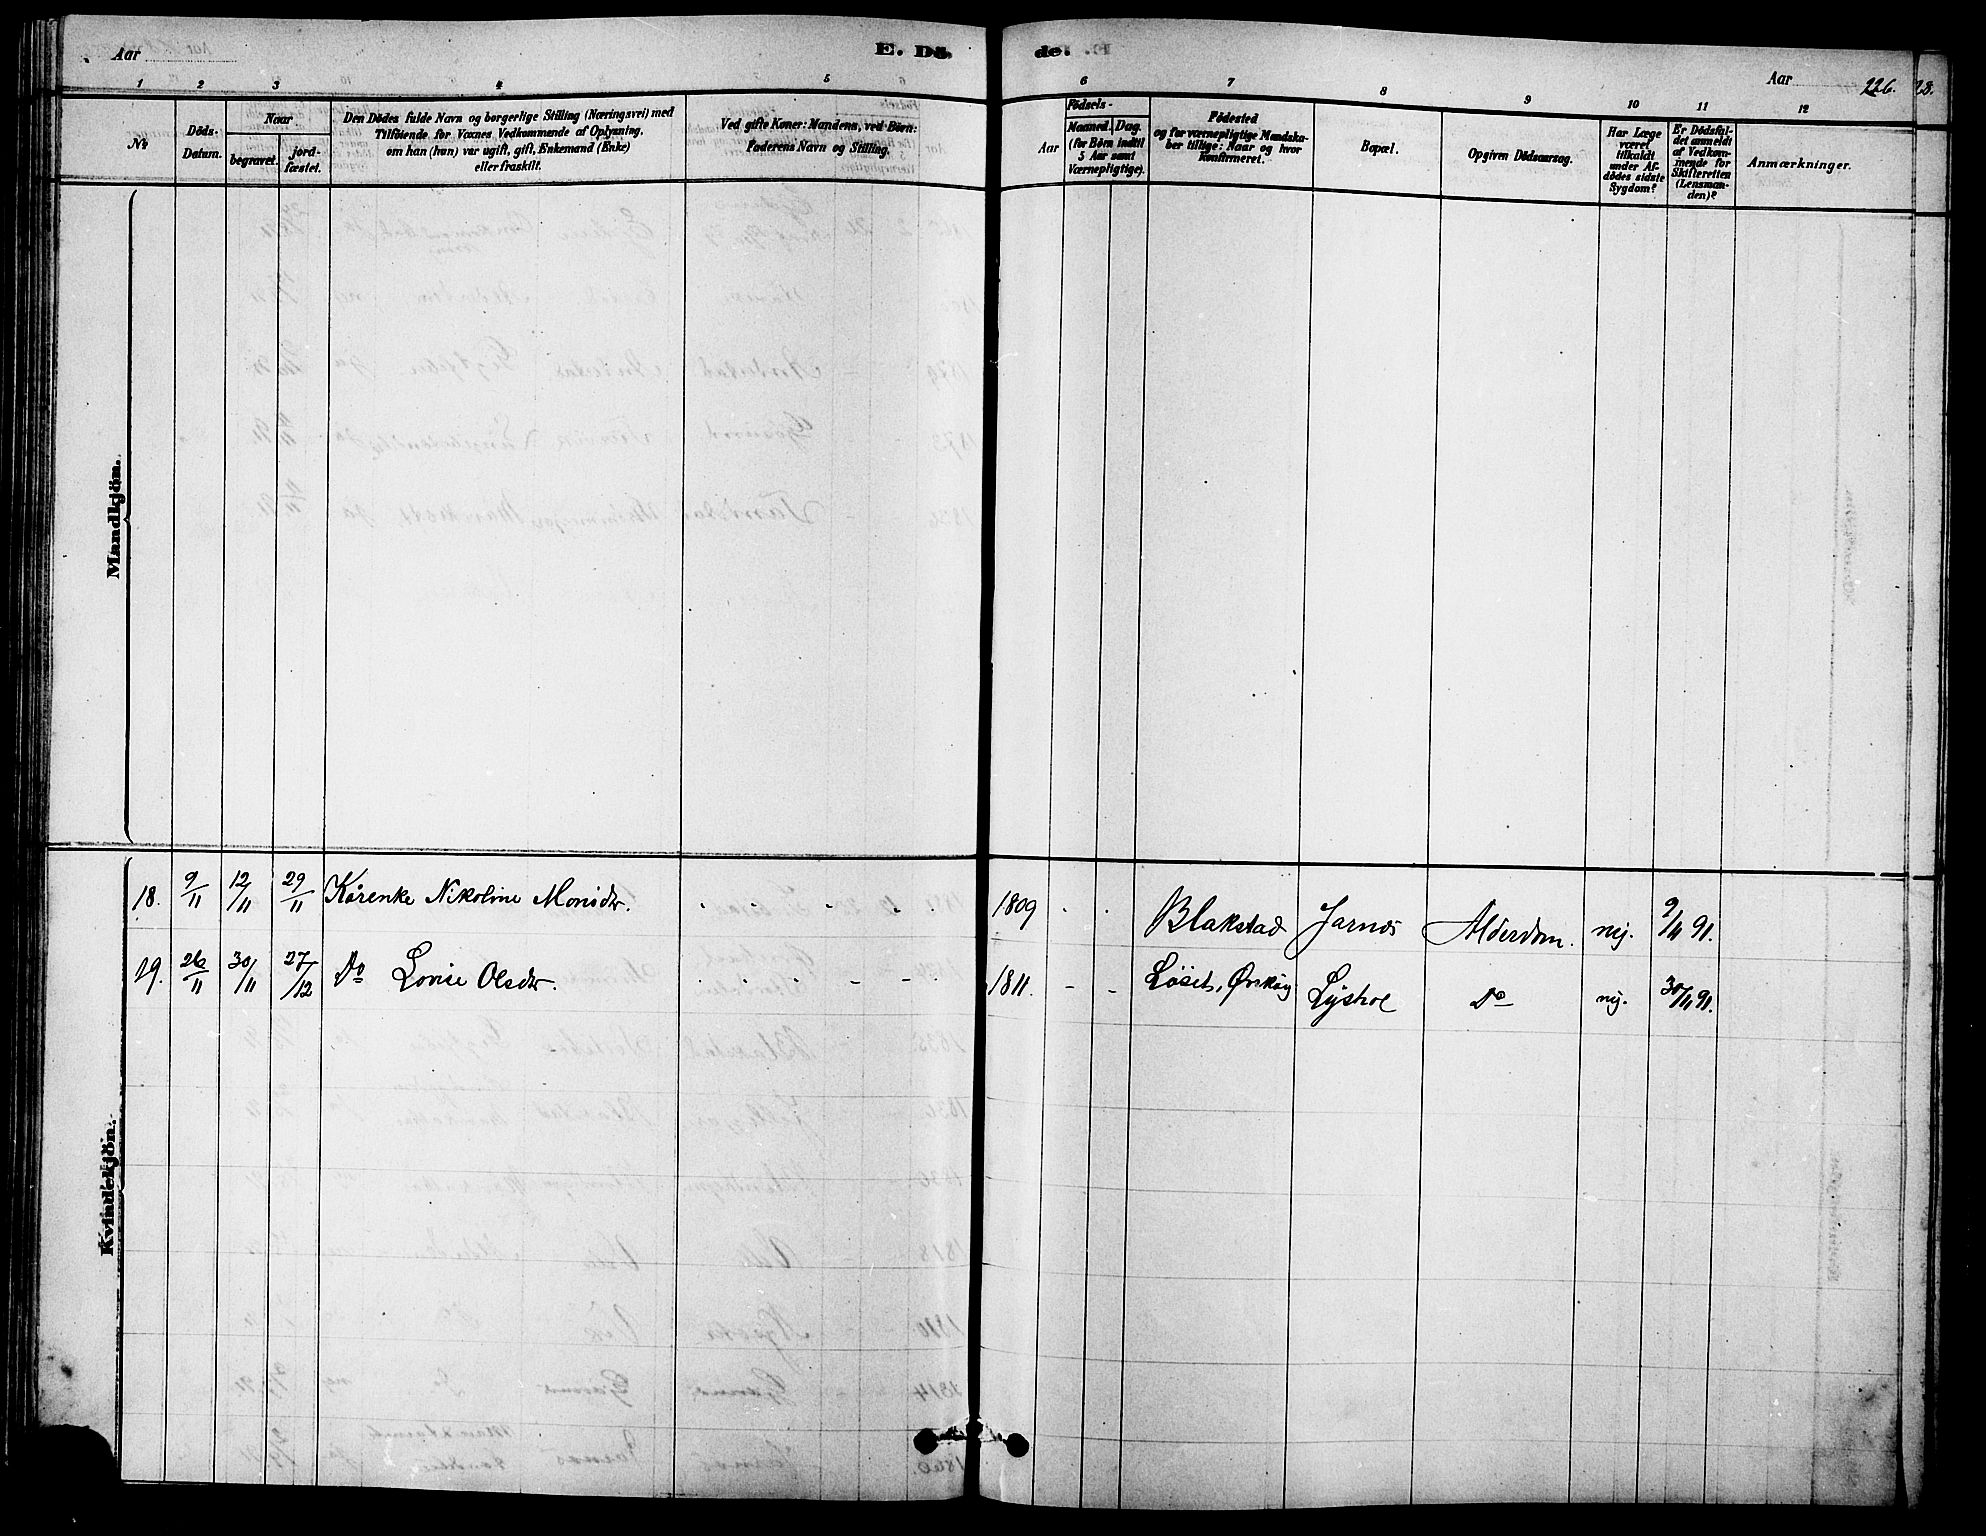 Aar
E. Dö
de.
Aar
226.
28.
1 2 3 4 5 6 7 8 9 10 11 12
No
Döds-
Datum.
Naar
begravet.
jord-
fæstet.
Den Dödes fulde Navn og borgerlige Stilling (Næringsvei) med
Tilföiende for Voxnes Vedkommende af Oplysning,
om han (hun) var ugift, gift, Enkemand (Enke)
eller fraskilt.
Ved gifte Koner: Mandens, ved Börn:
Faderens Navn og Stilling.
Födsels-
Aar
Maaned.
Dag.
(for Börn indtil
5 Aar samt
Værnepligtige).
Födested
og for værnepligtige Mandska-
ber tillige: Naar og hvor
konfirmeret.
Bopæl.
Opgiven Dödsaarsag.
Har Læge
været
tilkaldt
under Af-
dödes sidste
Sygdom?
Er Dödsfal-
det anmeldt
af Vedkom-
mende for
Skifteretten
(Lensman-
den)?
Anmærkninger.
Mandkjön.
Kvindekjön.
18. 9/11 12/11 29/11 Kårenke Nikoline Monsdtr. 1809 Blakstad Jarnes Alderdom. nej. 9/11 91.
19. 26/11 30/11 27/12 Do Lovise Olsdtr. 1811. Löset, Ørskog Do nej. 30/11 91.